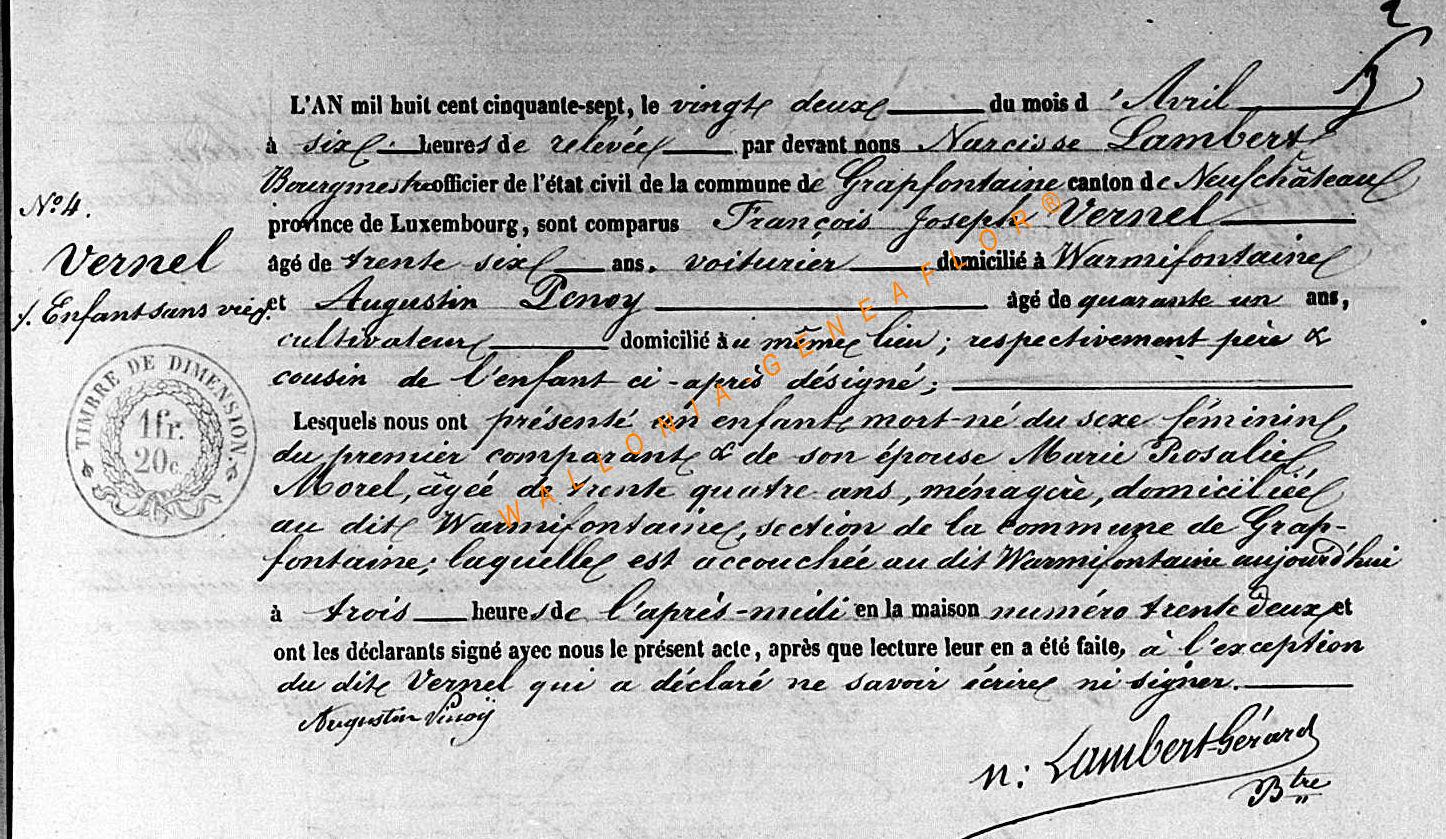 2
5
L'AN mil huit cent cinquante-sept, le vingt deux du mois d'Avril
à six heures de relevée par devant nous Narcisse Lambert
Bourgmestre officier de l'état civil de la commune de Grapfontaine canton de Neufchâteau
province de Luxembourg, sont comparus François Joseph Vernel
âgé de trente six ans, voiturier domicilié à Warmifontaine
et Augustin Penoy âgé de quarante un ans,
cultivateur domicilié au même lieu; respectivement père &
cousin de l'enfant ci-après désigné;
Lesquels nous ont présenté un enfant mort-né du sexe féminin,
du premier comparant & de son épouse Marie Rosalie
Morel, âgée de trente quatre ans, ménagère, domiciliée
au dit Warmifontaine, section de la commune de Grap-
fontaine; laquelle est accouchée au dit Warmifontaine aujourd'hui
à trois heures de l'après-midi en la maison numéro trente deux et
ont les déclarants signé avec nous le présent acte, après que lecture leur en a été faite, à l'exception
du dit Vernel qui a déclaré ne savoir écrire ni signer.
Augustin Pinoÿ
n: Lambert-Gérard
Btre
N° 4.
Vernel
Enfant sans vie.
TIMBRE DE DIMENSION
1fr.
20c.
WALLONIA-GENEAFLOR®